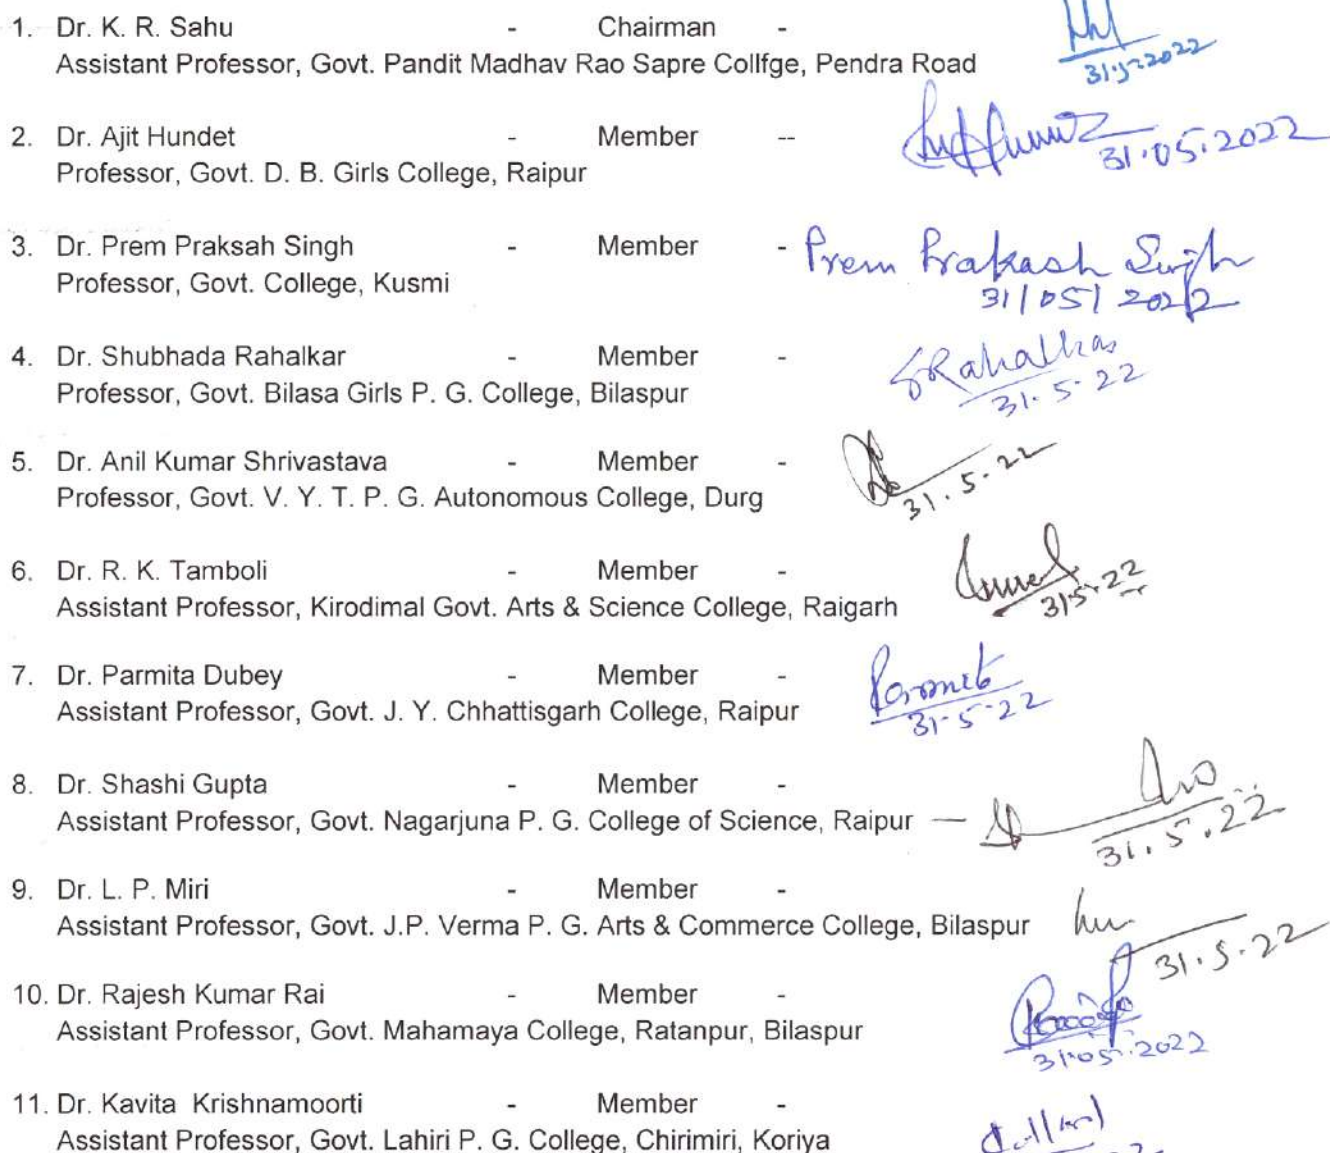 1. Dr. K. R. Sahu - Chairman -
31.5.2022
Assistant Professor, Govt. Pandit Madhav Rao Sapre Collfge, Pendra Road
2. Dr. Ajit Hundet - Member --
31.05.2022
Professor, Govt. D. B. Girls College, Raipur
3. Dr. Prem Praksah Singh - Member - Prem Prakash Singh
31/05/2022
Professor, Govt. College, Kusmi
4. Dr. Shubhada Rahalkar - Member - SRahalkar
31.5.22
Professor, Govt. Bilasa Girls P. G. College, Bilaspur
5. Dr. Anil Kumar Shrivastava - Member -
31.5.22
Professor, Govt. V. Y. T. P. G. Autonomous College, Durg
6. Dr. R. K. Tamboli - Member -
31.5.22
Assistant Professor, Kirodimal Govt. Arts & Science College, Raigarh
7. Dr. Parmita Dubey - Member -
31-5-22
Assistant Professor, Govt. J. Y. Chhattisgarh College, Raipur
8. Dr. Shashi Gupta - Member -
Assistant Professor, Govt. Nagarjuna P. G. College of Science, Raipur —
31.5.22
9. Dr. L. P. Miri - Member -
Assistant Professor, Govt. J.P. Verma P. G. Arts & Commerce College, Bilaspur
31.5.22
10. Dr. Rajesh Kumar Rai - Member -
Assistant Professor, Govt. Mahamaya College, Ratanpur, Bilaspur
31.05.2022
11. Dr. Kavita Krishnamoorti - Member -
Assistant Professor, Govt. Lahiri P. G. College, Chirimiri, Koriya